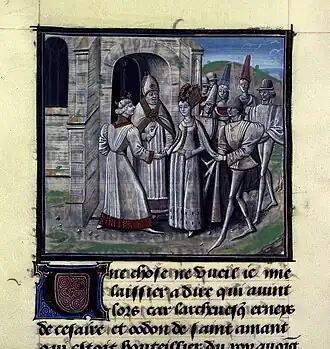 Une chose ne vueil ie mie
laissier a dire qui auint
lors car larcheuesq erneys
de cesaire et oodon de saint amant
qui estoit bouteillier du roy auoit